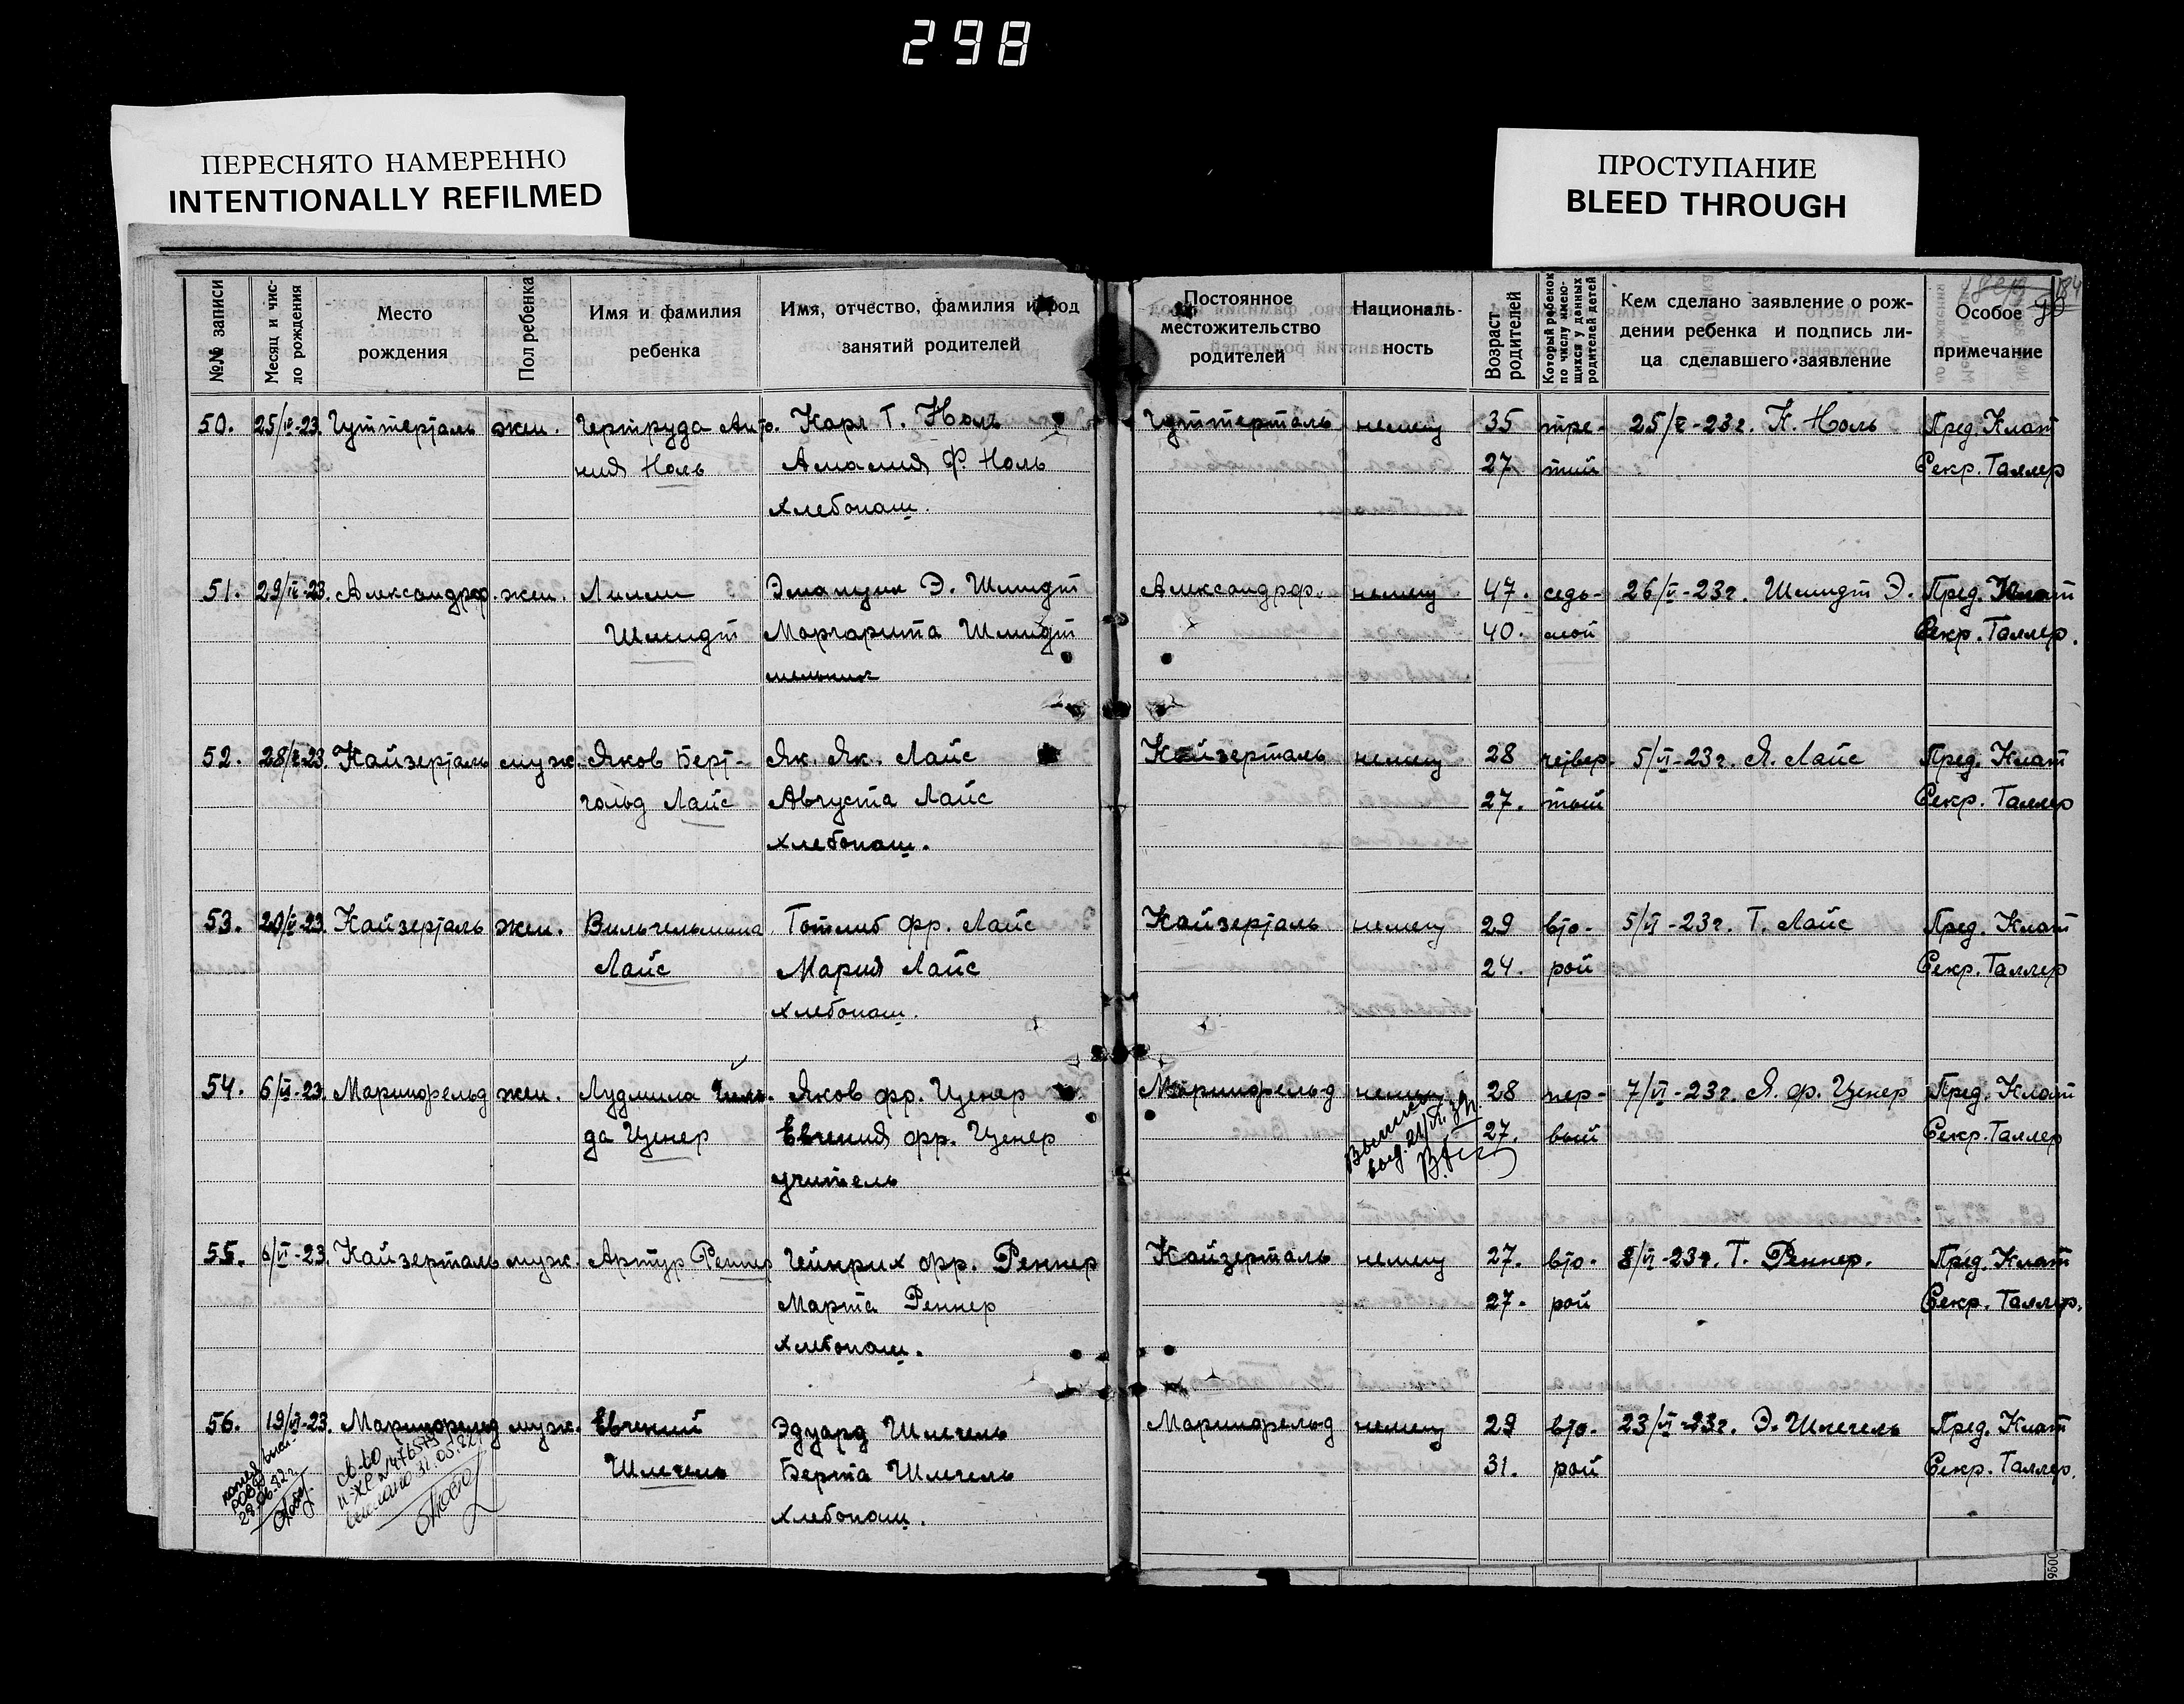 298
ПЕРЕСНЯТО НАМЕРЕННО
INTENTIONALLY REFILMED
ПРОСТУПАНИЕ
BLEED THROUGH
№№ записи
Месяц и чис-
ло рождения
Место
рождения
Пол ребенка
Имя и фамилия
ребенка
Имя, отчество, фамилия и род
занятий родителей
Постоянное
местожительство
родителей
Националь-
ность
Возраст
родителей
Который ребенок
по числу имею-
щихся у данных
родителей детей
Кем сделано заявление о рож-
дении ребенка и подпись ли-
ца сделавшего заявление
Особое
примечание
50. 25/IV-23. Гуттерталь жен. Гертруда Анто- Карл Г. Ноль Гуттерталь немец 35 тре- 25/V-23г. К. Ноль Пред. Клат
ния Ноль Амалия Ф. Ноль 27. тий Секр. Таллер
хлебопаш.
51. 29/IV-23. Александрф. жен. Лилли Эмануил Э. Шмидт Александрф. немец 47. седь- 26/V-23г. Шмидт Э. Пред. Клат
Шмидт Маргарита Шмидт 40. мой Секр. Таллер.
мельник
52. 28/V-23. Кайзерталь муж. Яков Берт- Як. Як. Лайс Кайзерталь немец 28 четвер- 5/VI-23г. Я. Лайс Пред. Клат
гольд Лайс Августа Лайс 27. тый Секр. Таллер
хлебопаш.
53. 20/V-23. Кайзерталь жен. Вильгельмина Готлиб фр. Лайс Кайзерталь немец 29 вто- 5/VI-23г. Г. Лайс Пред. Клат
Лайс Мария Лайс 24. рой Секр. Таллер
хлебопаш.
54. 6/VI-23. Маринфельд жен. Лудмила Гиль- Яков фр. Ценер Маринфельд немец 28 пер- 7/VI-23г. Я. ф. Ценер Пред. Клат
да Ценер Евгения фр. Ценер 27. вый Секр. Таллер
учитель
55. 6/VI-23. Кайзерталь муж. Артур Реннер Гейнрих фр. Реннер Кайзерталь немец 27. вто- 8/VI-23г. Г. Реннер. Пред. Клат
Марта Реннер 27. рой Секр. Таллер.
хлебопаш.
56. 19/VI-23. Маринфельд муж. Евгений Эдуард Шлегель Маринфельд немец 29 вто- 23/VI-23г. Э. Шлегель Пред. Клат
Шлегель Берта Шлегель 31. рой Секр. Таллер.
хлебопаш.